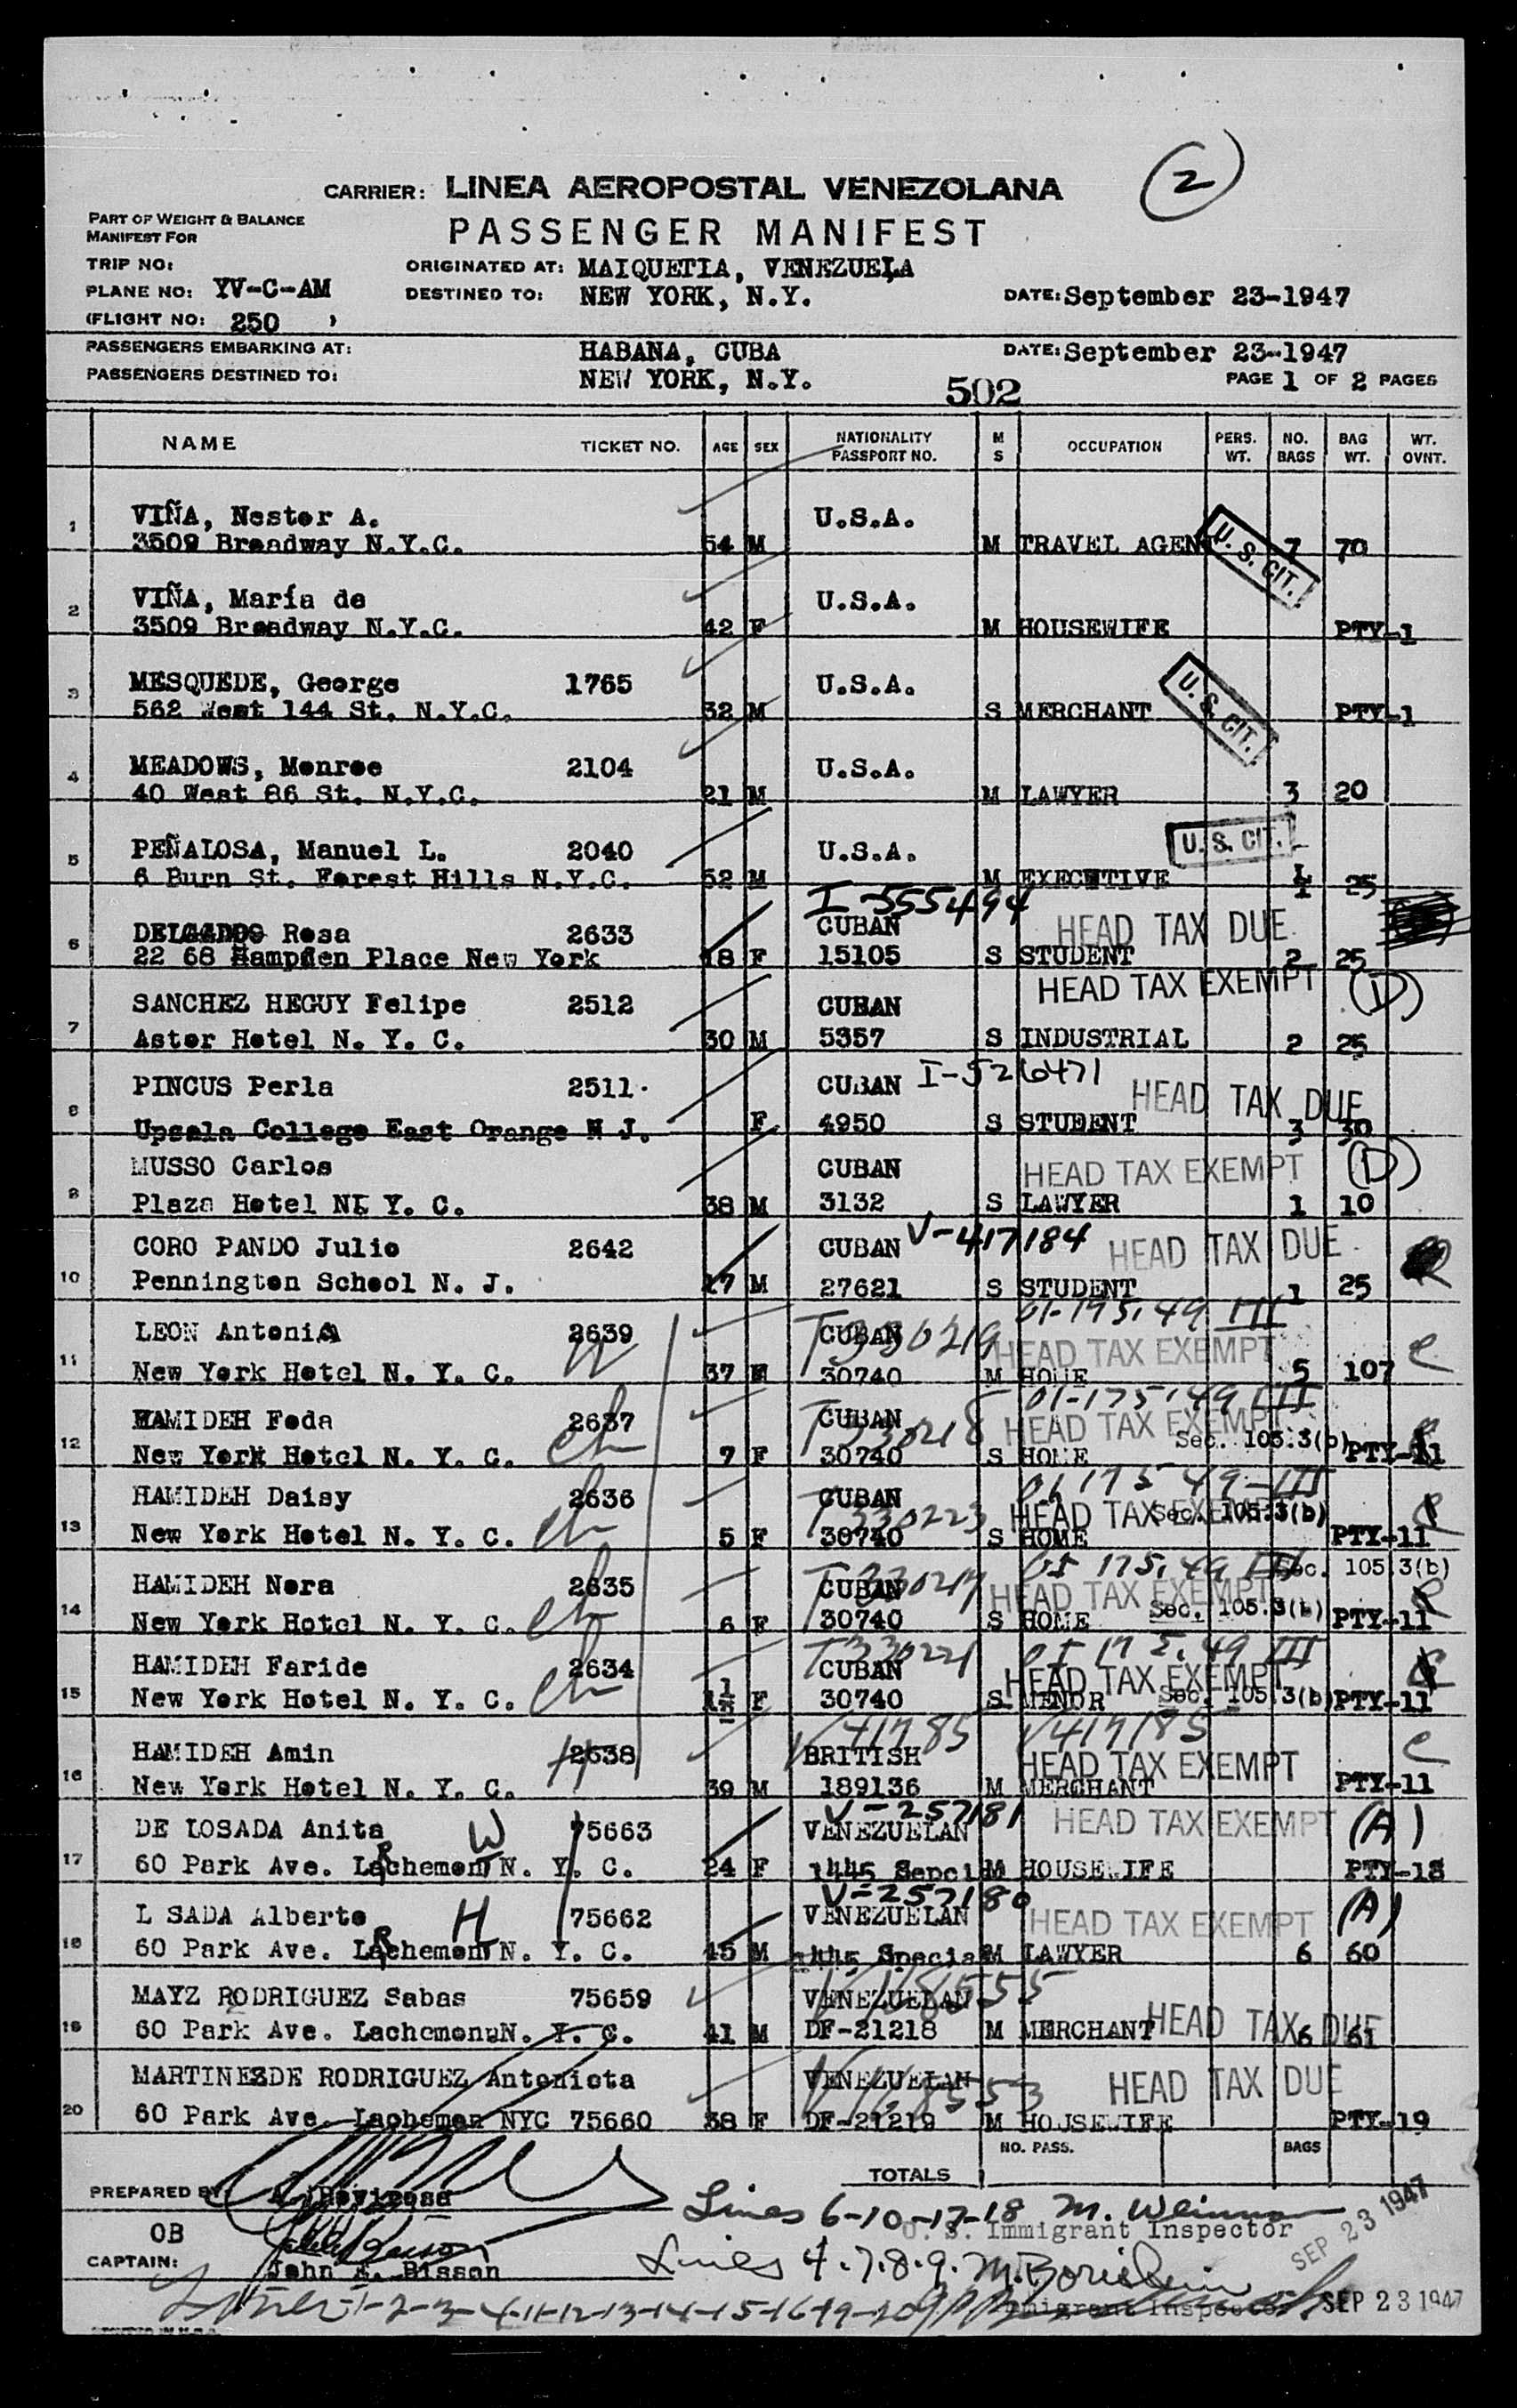 2
CARRIER: LINEA AEROPOSTAL VENEZOLANA
PART OF WEIGHT & BALANCE
MANIFEST FOR
PASSENGER MANIFEST
TRIP NO: ORIGINATED AT: MAIQUETIA, VENEZUELA
PLANE NO: YV-C-AM DESTINED TO: NEW YORK, N.Y. DATE: September 23-1947
(FLIGHT NO: 250 )
PASSENGERS EMBARKING AT: HABANA, CUBA DATE: September 23-1947
PASSENGERS DESTINED TO: NEW YORK, N.Y. 502 PAGE 1 OF 2 PAGES
NAME TICKET NO. AGE SEX NATIONALITY PASSPORT NO. M S OCCUPATION PERS. WT. NO. BAGS BAG WT. WT. OVNT.
1 VIÑA, Nestor A. U.S.A.
3509 Broadway N.Y.C. 54 M M TRAVEL AGENT U. S. CIT. 7 70
2 VIÑA, María de U.S.A.
3509 Broadway N.Y.C. 42 F M HOUSEWIFE PTY-1
3 MESQUEDE, George 1765 U.S.A.
562 West 144 St. N.Y.C. 32 M S MERCHANT U. S. CIT. PTY-1
4 MEADOWS, Monroe 2104 U.S.A.
40 West 86 St. N.Y.C. 21 M M LAWYER 3 20
5 PEÑALOSA, Manuel L. 2040 U.S.A. U. S. CIT.
6 Burn St. Forest Hills N.Y.C. 52 M M EXECUTIVE 25
I-555494
6 DELGADO Rosa 2633 CUBAN HEAD TAX DUE
22 68 Hampden Place New York 18 F 15105 S STUDENT 2 25
HEAD TAX EXEMPT (D)
7 SANCHEZ HEGUY Felipe 2512 CUBAN
Astor Hotel N. Y. C. 30 M 5357 S INDUSTRIAL 2 25
8 PINCUS Perla 2511 CUBAN I-526471 HEAD TAX DUE
Upsala College East Orange N J. F 4950 S STUDENT 3 30
9 MUSSO Carlos CUBAN HEAD TAX EXEMPT (D)
Plaza Hotel N. Y. C. 38 M 3132 S LAWYER 1 10
10 CORO PANDO Julio 2642 CUBAN V-417184 HEAD TAX DUE
Pennington School N. J. 17 M 27621 S STUDENT 1 25
01-175.49 III
11 LEON Antonia 2639 CUBAN T330219 HEAD TAX EXEMPT
New York Hotel N. Y. C. W 37 F 30740 M HOME 5 107
01-175.49 III
12 HAMIDEH Feda 2637 CUBAN T330218 HEAD TAX EXEMPT
New York Hotel N. Y. C. ch 7 F 30740 S HOME Sec. 105.3(b) PTY-11
01 175 49-III
13 HAMIDEH Daisy 2636 CUBAN T330223 HEAD TAX EXEMPT Sec. 105.3(b)
New York Hotel N. Y. C. ch 5 F 30740 S HOME PTY-11
01 175.49 III Sec. 105.3(b)
14 HAMIDEH Nora 2635 CUBAN HEAD TAX EXEMPT
New York Hotel N. Y. C. ch 6 F 30740 S HOME Sec. 105.3(b) PTY-11
T330221 01 175.49 III
15 HAMIDEH Faride 2634 CUBAN HEAD TAX EXEMPT
New York Hotel N. Y. C. ch 1½ F 30740 S MENOR Sec. 105.3(b) PTY-11
V41785 V417185
16 HAMIDEH Amin 2638 BRITISH HEAD TAX EXEMPT
New York Hotel N. Y. C. H 39 M 189136 M MERCHANT PTY-11
V-257181
17 DE LOSADA Anita W 75663 VENEZUELAN HEAD TAX EXEMPT (A)
60 Park Ave. Larchemont N. Y. C. 24 F 1445 M HOUSEWIFE PTY-18
V-257180
18 L SADA Alberto H 75662 VENEZUELAN HEAD TAX EXEMPT (A)
60 Park Ave. Larchemont N. Y. C. 45 M 1445 Special M LAWYER 6 60
19 MAYZ RODRIGUEZ Sabas 75659 VENEZUELAN
60 Park Ave. Lachemont N. Y. C. 41 M DF-21218 M MERCHANT HEAD TAX DUE 6 61
20 MARTINEZ DE RODRIGUEZ Antonieta VENEZUELAN HEAD TAX DUE
60 Park Ave. Lachemon NYC 75660 38 F DF-21219 M HOUSEWIFE PTY-19
NO. PASS. BAGS
TOTALS
PREPARED BY:
Lines 6-10-17-18 M. Weinman
OB U. S. Immigrant Inspector SEP 23 1947
CAPTAIN: John A. Bisson Lines 4.7.8.9.
Lines 1-2-3-4-11-12-13-14-15-16-19-20 Immigrant Inspector SEP 23 1947